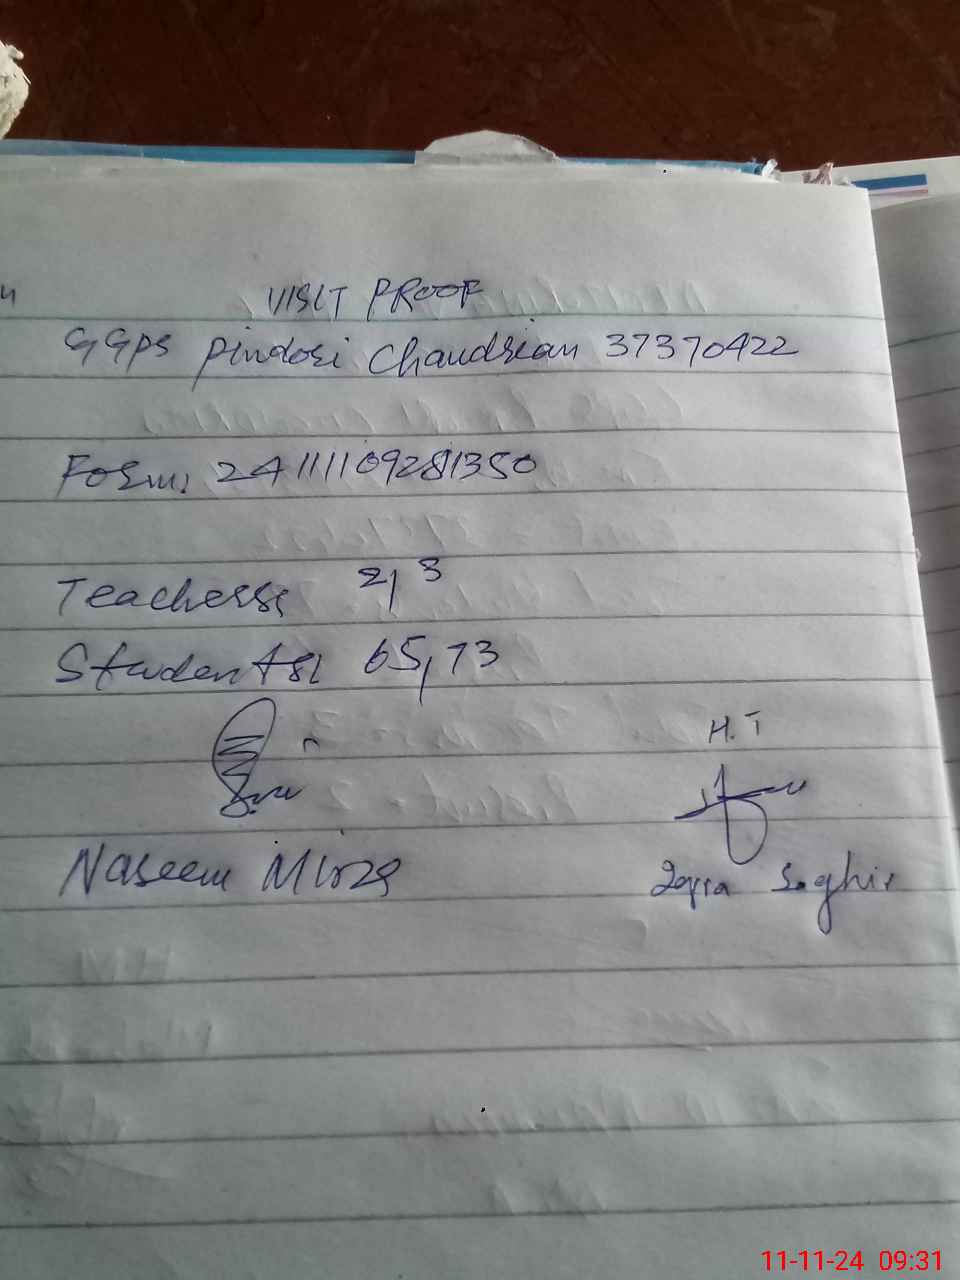 VISIT PROOF
GGPS Pindori Chaudrian 37370422
Form: 241111109281350
Teachers: 2, 3
Students: 65, 73
H.T
Naseem Mirza
Iqra Saghir
11-11-24 09:31